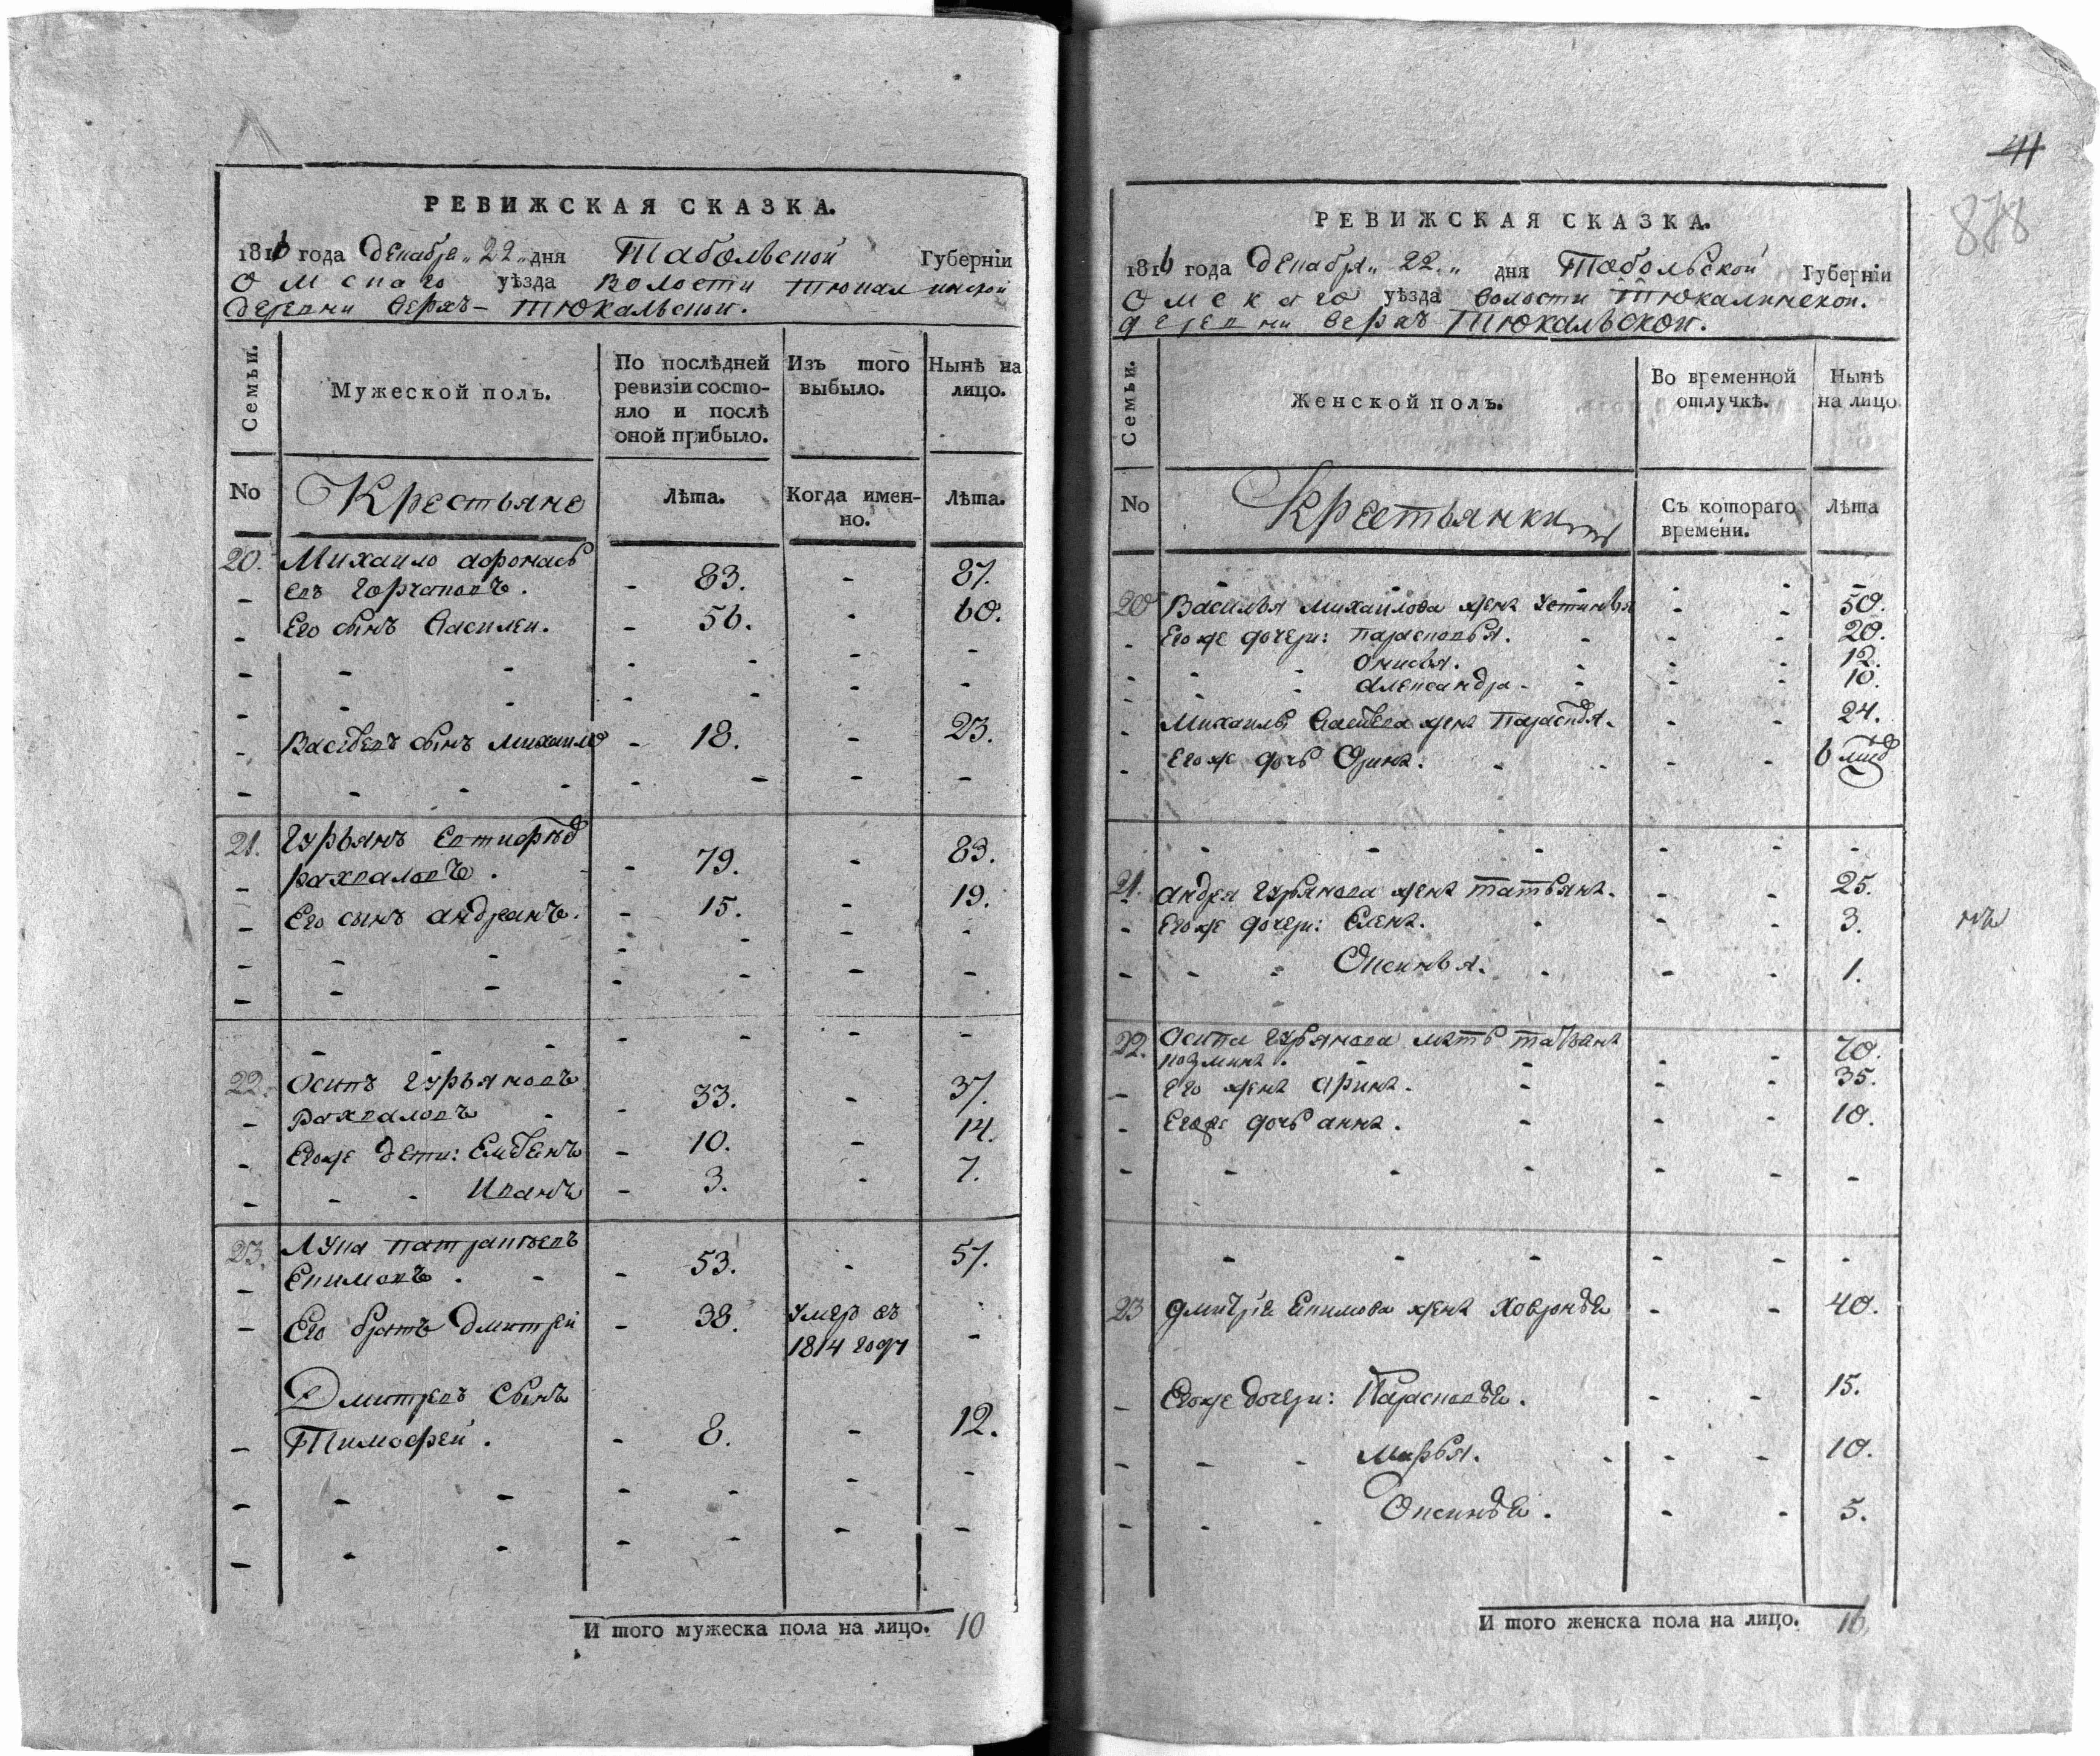 РЕВИЖСКАЯ СКАЗКА.
1816 года декабря „22„ дня Табольской Губернїи
Омскаго уѣзда Волости тюкалинской
деревни верхъ-тюкальской.
Семьи.
Мужеской полъ.
По послѣдней
ревизїи состо-
яло и послѣ
оной прибыло.
Изъ того
выбыло.
Нынѣ на
лицо.
No
Крестьяне
Лѣта.
Когда имен-
но.
Лѣта.
20. Михаило афонась
евъ горчаковъ. - 83. - 87.
Его сынъ Василеи. - 56. - 60.
Васильевъ сынъ михаило - 18. - 23.
21. Гурьянъ
рахваловъ. - 79. - 83.
Его сынъ андреанъ. - 15. - 19.
22. Осипъ гурьяновъ
рахваловъ - 33. - 37.
Егоже дети: - 10. - 14.
Иванъ - 3. - 7.
23. Лука патракеевъ
Екимовъ. - 53. - 57.
Его братъ дмитреи - 38. умер въ
1814 году -
Дмитревъ сынъ
Тимофеи. - 8. - 12.
И того мужеска пола на лицо. 10
41
878
РЕВИЖСКАЯ СКАЗКА.
1816 года декабря „22„ дня Тобольской Губернїи
Омскаго уѣзда волости Тюкалинской.
деревни верхъ Тюкальской.
Семьи.
Женской полъ.
Во временной
отлучкѣ.
Нынѣ
на лицо
No
Крестьянки
Съ котораго
времени.
Лѣта
20 Василья михаилова жена устинья - - 50.
Егоже дочери: парасковья. - - 20.
Анисья. - - 12.
александра - - 10.
Михаилы жена - - 24.
Егоже дочь Орина. - - 6
21. андрея гурьянова жена татьяна. - - 25.
Егоже дочери: Елена. - - 3.
Оксинья. - - 1.
22. Осипа гурьянова мать татьяна
козмина. - - 70.
Его жена арина. - - 35.
Егоже дочь анна. - - 10.
23 дмитрея Екимова жена ховронья - - 40.
Егоже дочери: Парасковья. - - 15.
Марья. - - 10.
Оксинья. - - 5.
И того женска пола на лицо. 16.